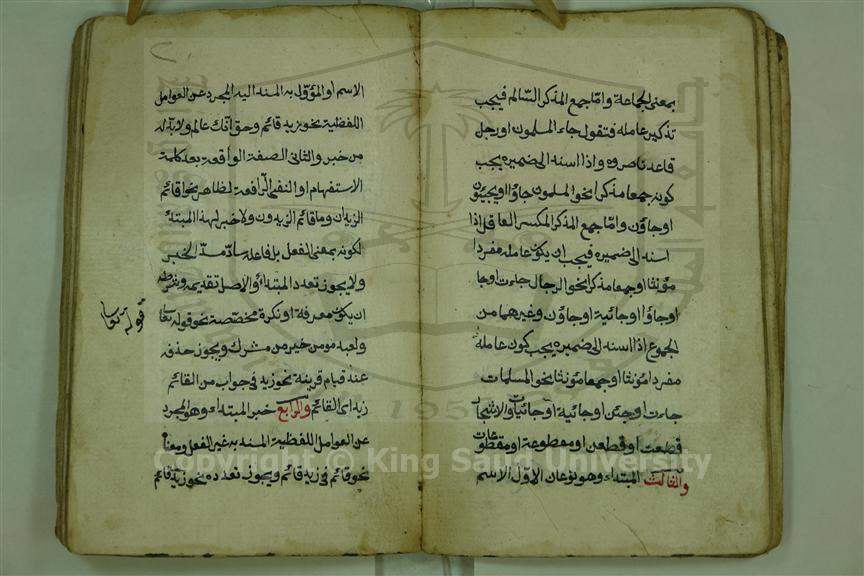 بمعنى الجماعة وامّا جمع المذكر السّالم فيجب
تذكير عامله فتقول جاء المسلمون او رجل
قاعد ناصروه واذا اسند الى ضميره يجب
كونه جمعا مذكرا نحو المسلمون جاؤا او يجيئون
او جاؤن وامّا جمع المذكر المكسر العاقل اذا
اسند الى ضميره فيجب ان يكون عامله مفردا
مؤنثا او جمعا مذكرا نحو الرجال جاءت او جا
او جاؤا او جائية او جاؤن وغيرهما من
الجموع اذا اسند الى ضميره يجب كون عامله
مفردا مؤنثا او جمعا مؤنثا نحو المسلمات
جاءت او جئن او جائية او جائيات والاشجار
قطعت او قطعن او مقطوعة او مقطوعات
والثالث المبتداء وهو نوعان الاوّل الاسم
الاسم او المؤوّل به المسند اليه المجرد عن العوامل
اللفظية نحو زيد قائم وحق انّك عالم ولا بدّ له
من خبر والثانى الصفة الواقعة بعد كلمة
الاستفهام او النفى الرّافعة لظاهر نحو اقائم
الزيدان وما قائم الزيدون ولا خبر لهذا المبتدئ
لكونه بمعنى الفعل بل فاعله سادّ مسدّ الخبر
ولا يجوز تعدد المبتداء والاصل تقديمه وشرطه
ان يكون معرفة او نكرة مخصّصة نحو قوله تعا
ولعبد مومن خير من مشرك ويجوز حذفه
عند قيام قرينة نحو زيد فى جواب من القائم
زيد اى القائم والرابع خبر المبتداء وهو المجرد
عن العوامل اللفظية المسند به غير الفعل ومعناه
نحو قائم فى زيد قائم ويجوز تعدده نحو زيد قائم
قوله تعا
Copyright © King Saud University
1957